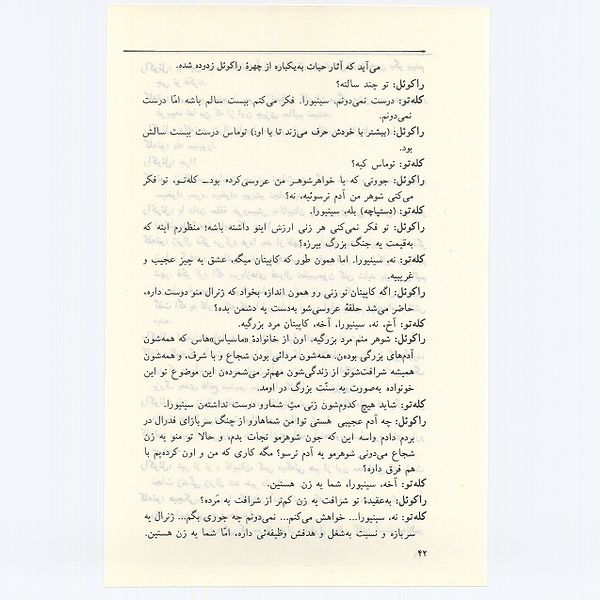 می‌آید که آثار حیات به‌یکباره از چهرهٔ راکوئل زدوده شده.
راکوئل: تو چند سالته؟
کله‌تو: درست نمی‌دونم. سینیورا. فکر می‌کنم بیست سالم باشه امّا درست
نمی‌دونم.
راکوئل: (بیشتر با خودش حرف می‌زند تا با او:) توماس درست بیست سالش
بود.
کله‌تو: توماس کیه؟
راکوئل: جوونی که با خواهرشوهر من عروسی‌کرده بود_ کله‌تو، تو فکر
می‌کنی شوهر من آدم ترسوئیه، نه؟
کله‌تو: (دستپاچه) بله، سینیورا.
راکوئل: تو فکر نمی‌کنی هر زنی ارزش اینو داشته باشه؛ منظورم اینه که
به‌قیمت یه جنگ بزرگ بیرزه؟
کله‌تو: نه، سینیورا. اما همون طور که کاپیتان میگه، عشق یه چیز عجیب و
غریبیه.
راکوئل: اگه کاپیتان تو زنی رو همون اندازه بخواد که ژنرال منو دوست داره،
حاضر می‌شد حلقهٔ عروسی‌شو به‌دست یه دشمن بده؟
کله‌تو: آخ، نه، سینیورا، آخه، کاپیتان مرد بزرگیه.
راکوئل: شوهر منم مرد بزرگیه. اون از خانوادهٔ «ماسیاس»هاس که همه‌شون
آدم‌های بزرگی بوده‌ن. همه‌شون مردائی بودن شجاع و با شرف، و همه‌شون
همیشه شرافت‌شونو از زندگی‌شون مهم‌تر می‌شمرده‌ن این موضوع تو این
خونواده به‌صورت یه سنّت بزرگ در اومد.
کله‌تو: شاید هیچ کدوم‌شون زنی مثِ شمارو دوست نداشته‌ن سینیورا.
راکوئل: چه آدم عجیبی هستی تو! من شماهارو از چنگ سربازای فدرال در
بردم دادم واسه این که جون شوهرمو نجات بدم، و حالا تو منو یه زن
شجاع می‌دونی شوهرمو یه آدم ترسو؟ مگه کاری که من و اون کرده‌یم با
هم فرق داره؟
کله‌تو: آخه، سینیورا، شما یه زن هستین.
راکوئل: به‌عقیدهٔ تو شرافت یه زن کم‌تر از شرافت یه مَرده؟
کله‌تو: نه، سینیورا... خواهش می‌کنم... نمی‌دونم چه جوری بگم... ژنرال یه
سربازه و نسبت به‌شغل و هدفش وظیفه‌ئی داره، امّا شما یه زن هستین.
۴۲